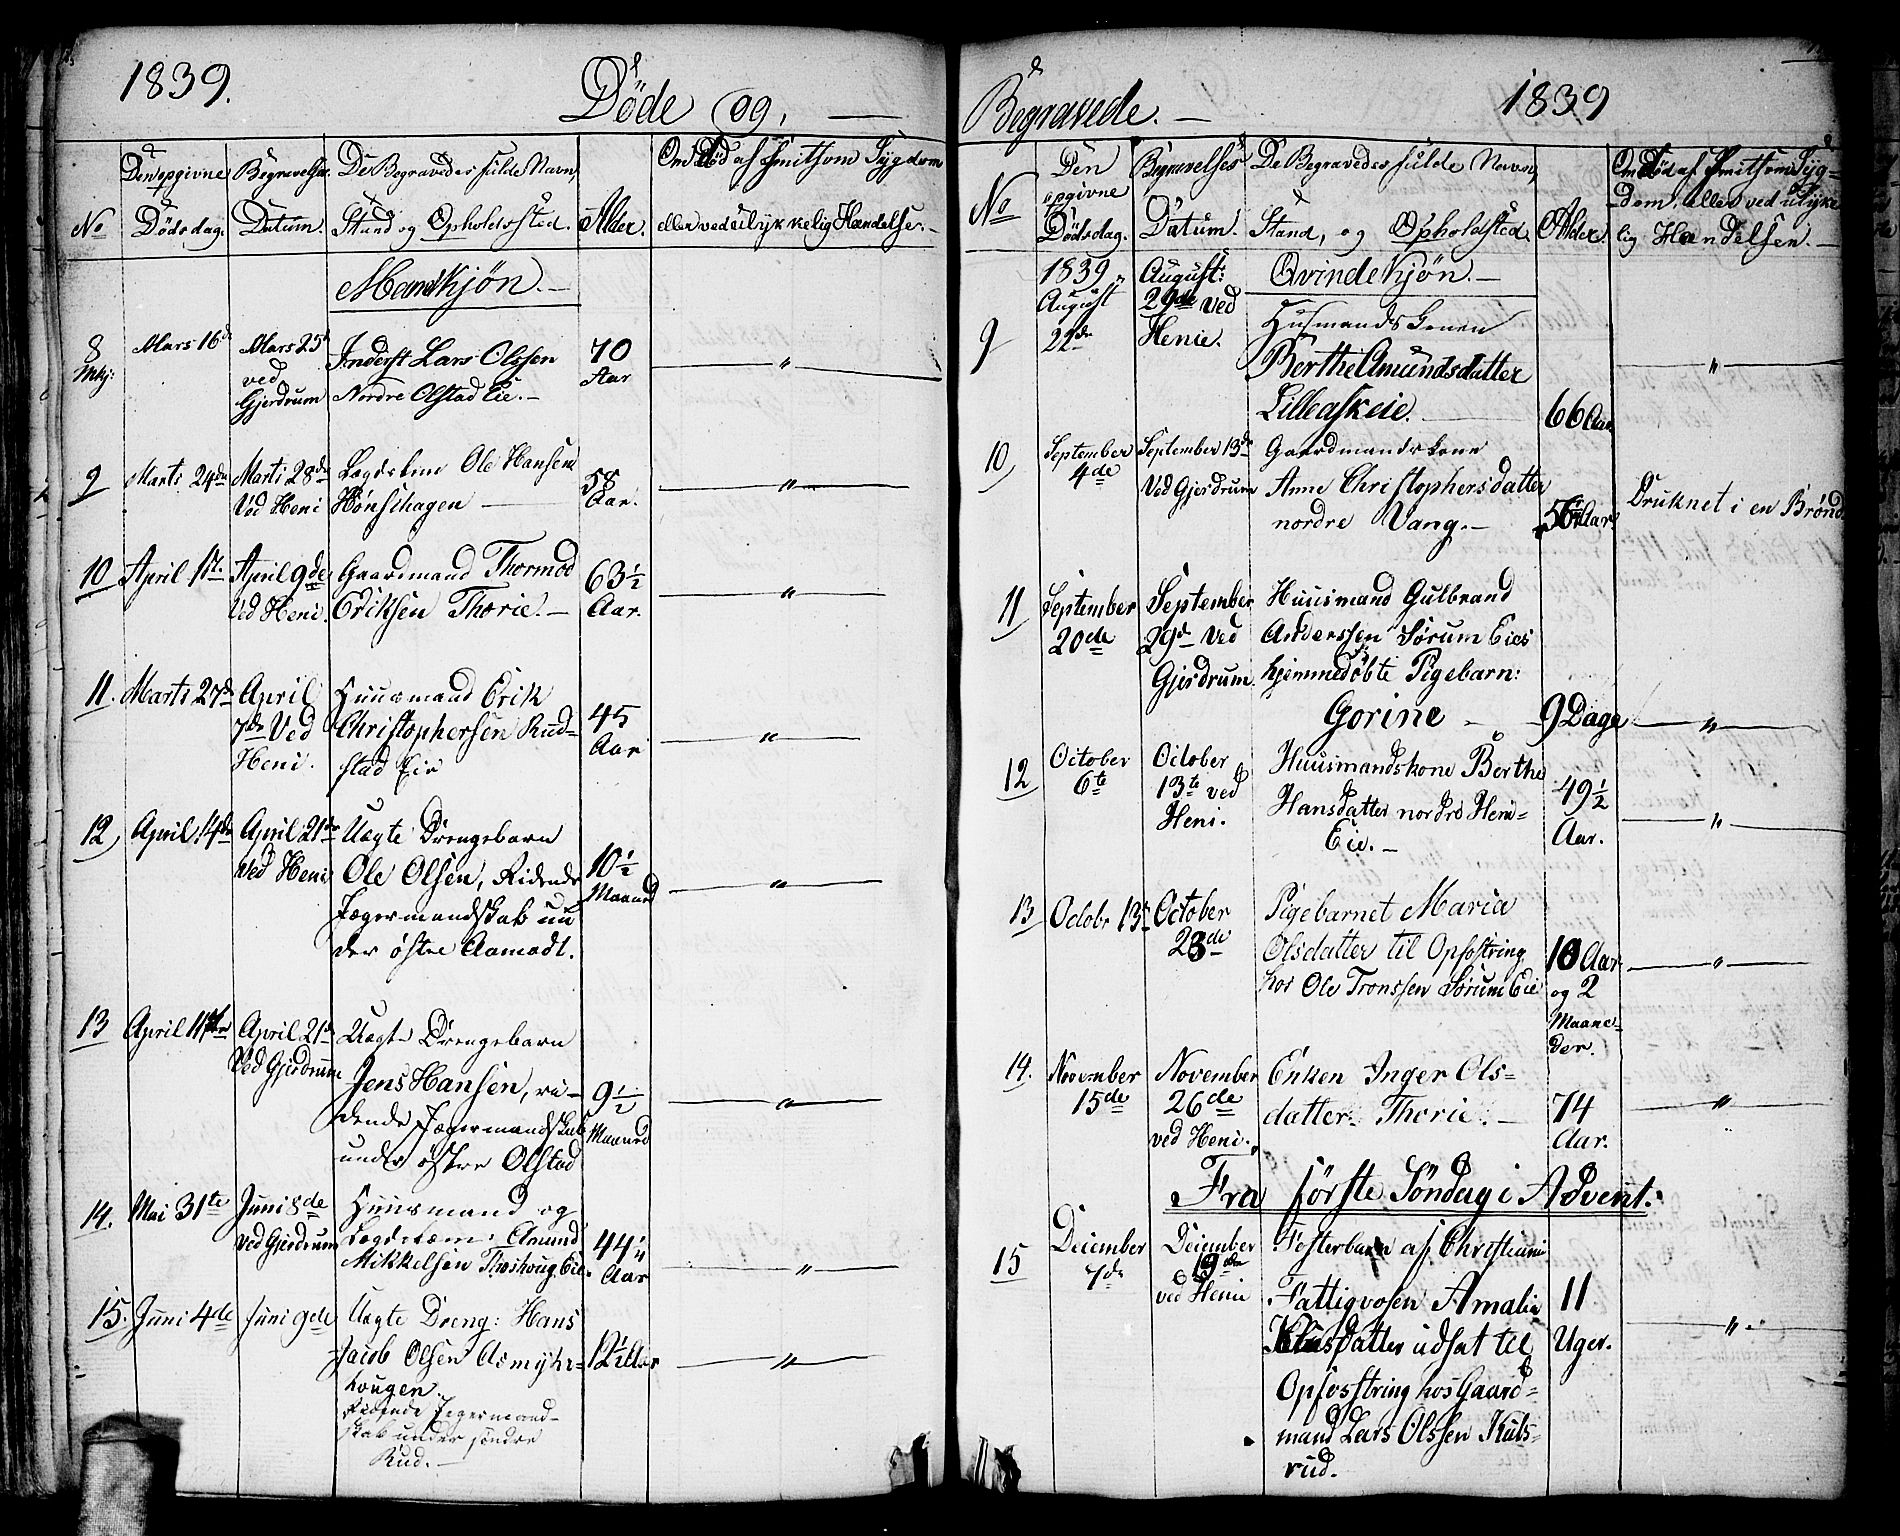 1839.
Døde og,
Den opgivne Dødsdag.
Begravelses Datum.
De Begravedes fulde Navn,
Stand og Opholdssted.
Alder.
Om død af smitsom Sygdom
eller ved ulykkelig Hændelse.
No
Mandkjøn.
8
Mkj:
Mars 16de
Mars 25de
ved
Gjerdrum
Inderst Lars Olssen
Nordre Olstad Eie.
70
Aar
"
9
Marts 24de
Marti 28de
Ved Heni
Lægdslem Ole Hansen
Hønsihagen
58
Aar.
"
10
April 1st.
April 9de
Ved Heni.
Gaardmand Thormod
Eriksen Thorie.
63 1/2
Aar.
"
11.
Marti 27de
April
7de Ved
Heni.
Huusmand Erik
Christophersen Rud-
stad Eie
45
Aar
"
12
April 14de
April 21de
Ved Heni
Uægte Drengebarn
Ole Olsen, Ridende
Jægermandskab un
der østre Aamodt.
10 1/2
Maaned
"
13
April 11te
April 21de
Ved Gjerdrum
Uægte Drengebarn
Jens Hansen, ri-
dende Jægermandskab
under østre Olstad
9 1/2
Maaned
"
14.
Mai 31te
Juni 8de
Ved Gjerdrum
Huusmand og
Lægdslem: Amund
Mikkelsen Thoshoug Eie.
44 1/4
Aar
"
15.
Juni 4de
Juni 9de
Uægte Dreng: Hans
Jacob Olsen Asmyhr-
hougen.
ridende Jegermand-
skab under søndre
Rud.
12 1/2 Aar
"
Begravede.
1839
No
Den
opgivne
Dødsdag.
Begravelses
Datum.
De Begravedes fulde Navn,
Stand, og Opholdsted
Alder.
Om død af smitsom Syg-
dom, eller ved ulyke
lig Hændelsen.
Qvindekjøn.
9
1839
August
22de
August:
29de ved
Henie.
Husmandskonen
Berthe Amundsdatter
Lilleaskeie.
66 Aar
"
10
September
4de
September 13de
Ved Gjerdrum
Gaardmandskone
Anne Christophersdatter
nordre Vang.
56 1/2 Aar
Druknet i en Brønd
11
September
20de
September
29de Ved
Gjerdrum.
Huusmand Gulbrand
Anderssen Sørum Eies
hjemmedøbte Pigebarn:
Gorine
9 Dage
"
12
October
6te
October
13te ved
Heni.
Huusmandskone Berthe
Hansdatter nordre Heni-
Eie.
49 1/2
Aar.
"
13
Octobr 13de
October
23de
Pigebarnet Maria
Olsdatter til Opfostring
hos Ole Tronssen Sørum Eie
10 Aar
og 2
Maane-
der.
"
14.
November
15de
November
26de
ved Heni.
Enken Inger Ols-
datter Thorie.
74
Aar.
"
Fra første Søndag i Advent.
15
Deiember
7de
Deiember
19de
ved Henie
Fosterbarn af Christiania
Fattigvæsen Amalia
datter udsat til
Opfosstring hos Gaard-
mand Lars Olssen Kuls-
rud.
11
Uger.
"